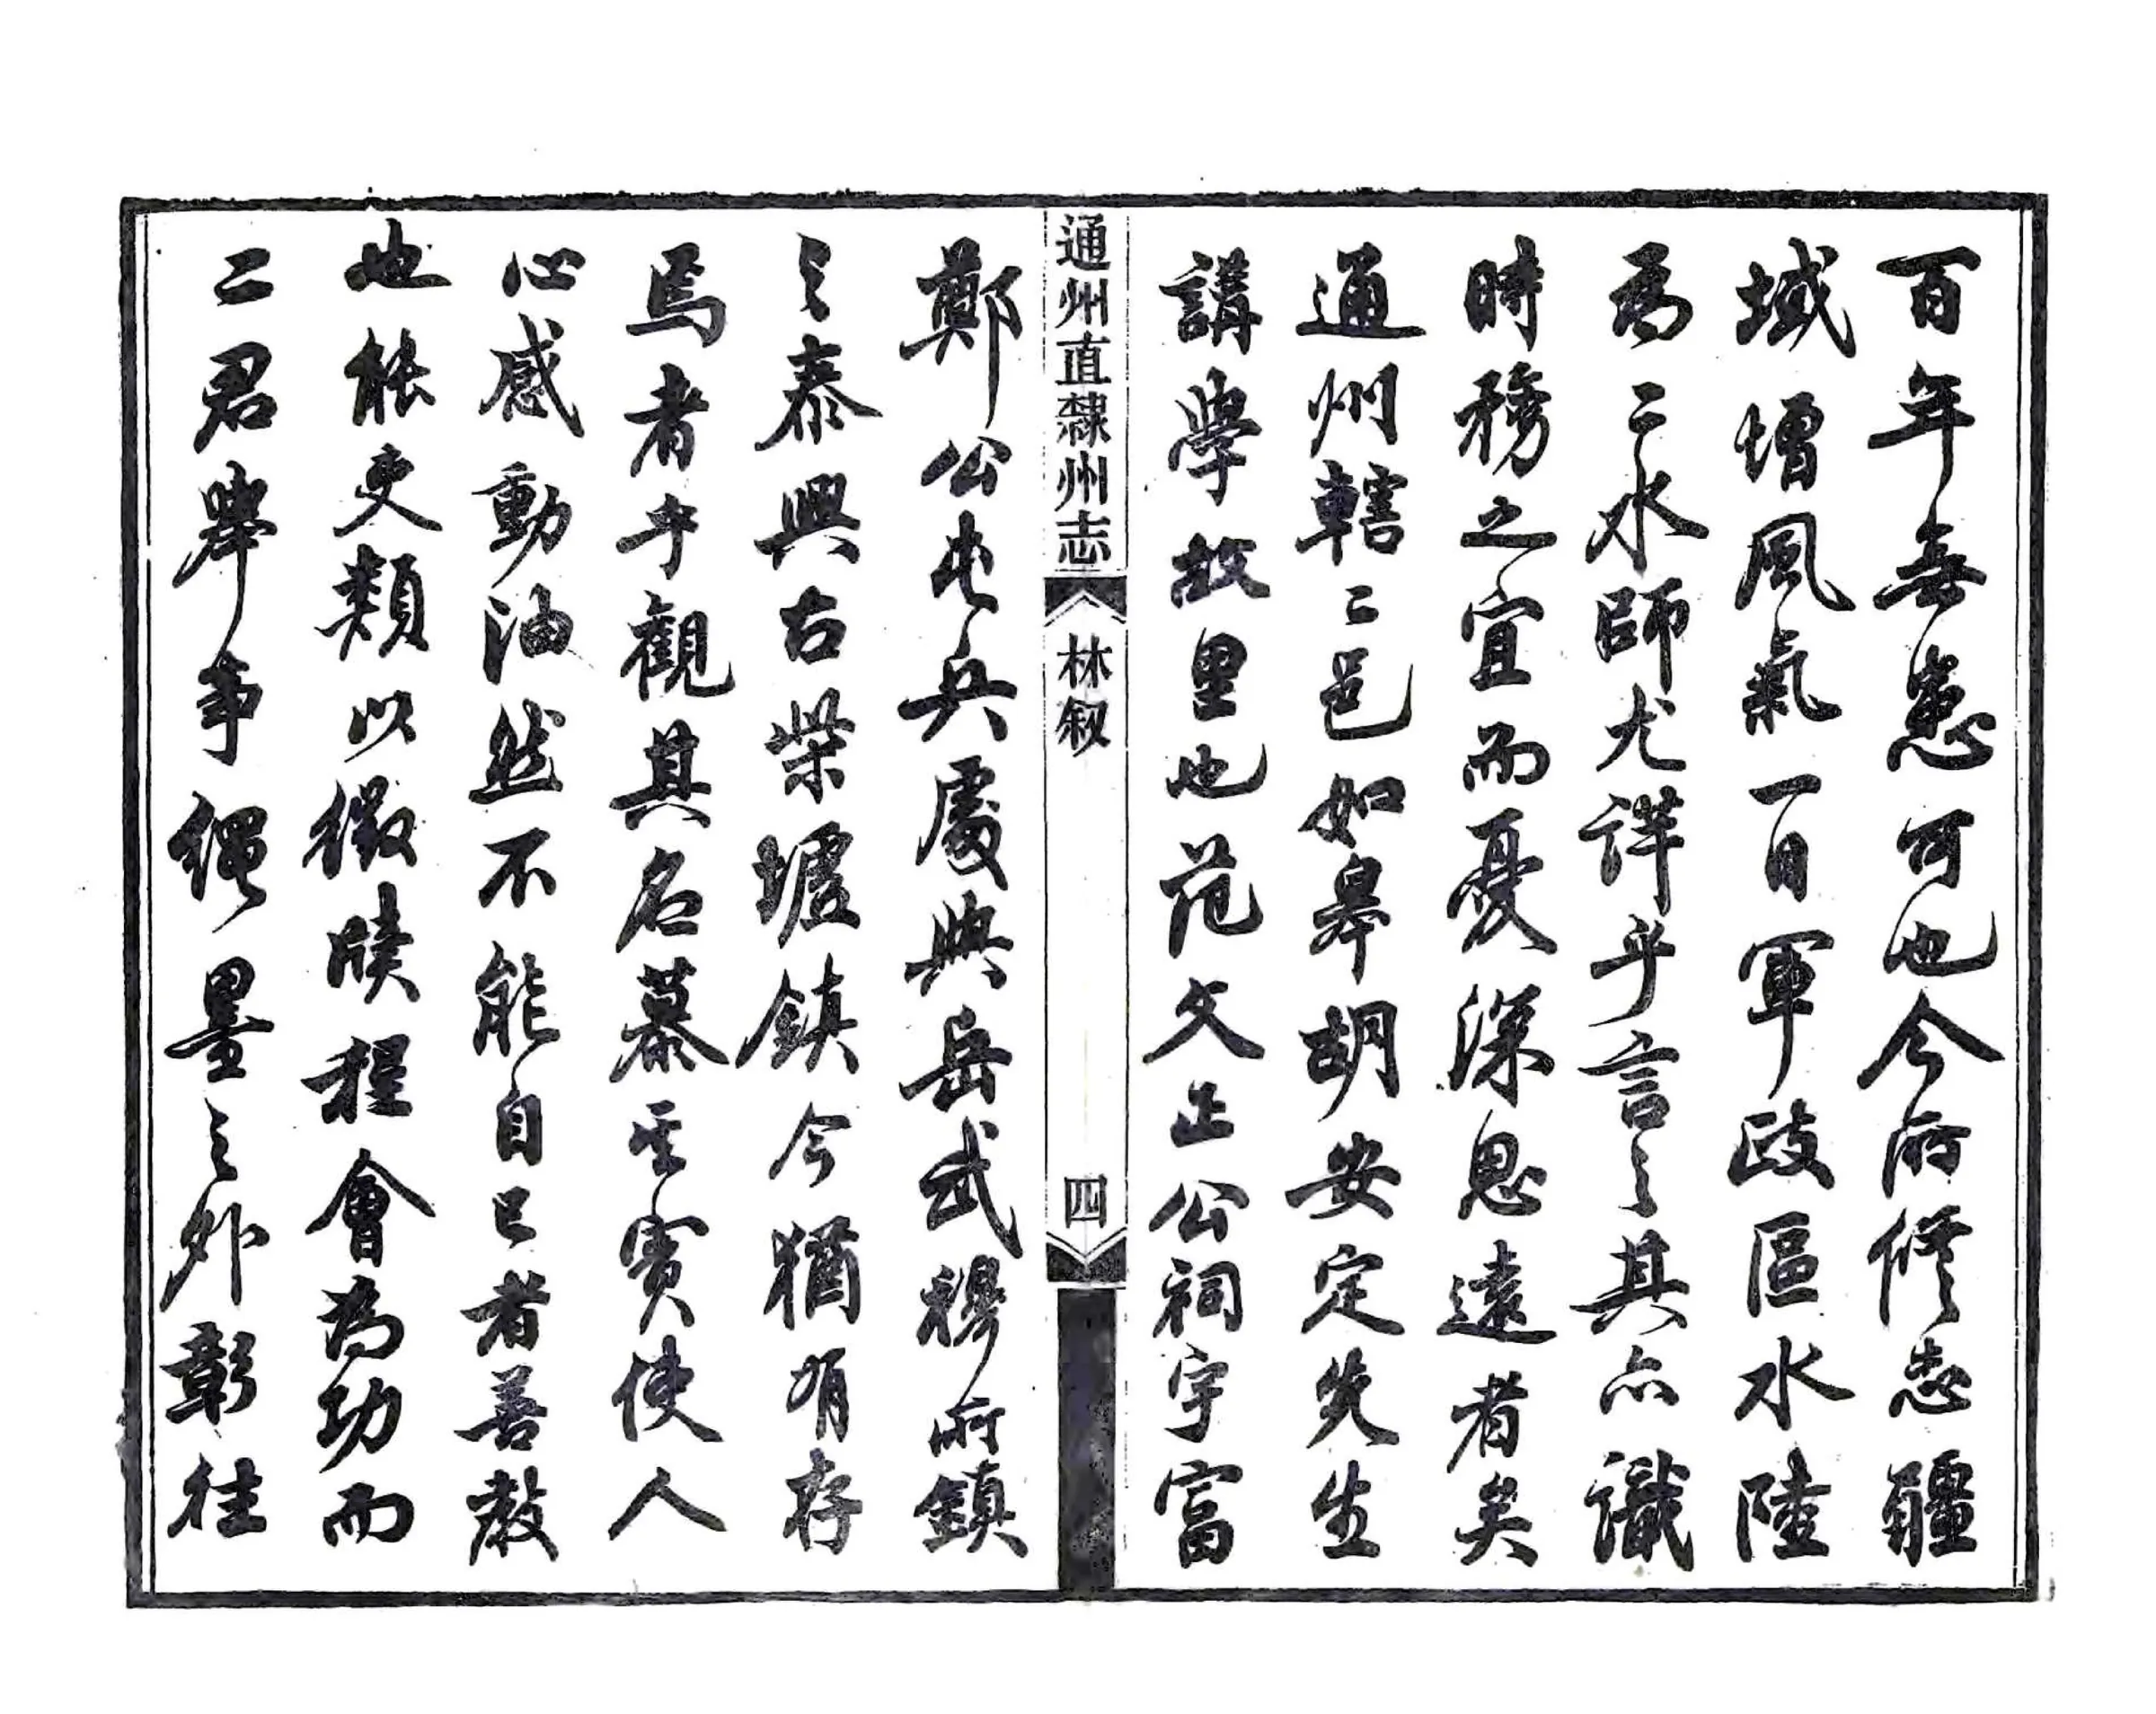 百年無患可也今所修志疆
域增風氣一目軍政區水陸
為二水師尤詳乎言之其亦識
時務之宜而憂深思遠者矣
通州轄二邑如皋胡安定先生
講學故里也范文正公祠宇富
通州直隸州志 林叙 四
鄭公屯兵處與岳武穆所鎮
之泰興古柴墟鎮今猶有存
焉者乎觀其名慕其實使人
心感動油然不能自已者善教
也能吏類以徵牘程會為功而
二君舉事繩墨之外彰往